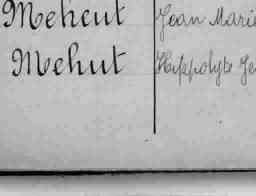 Mehcut Jean Marie
Mehut Hippolyte Je